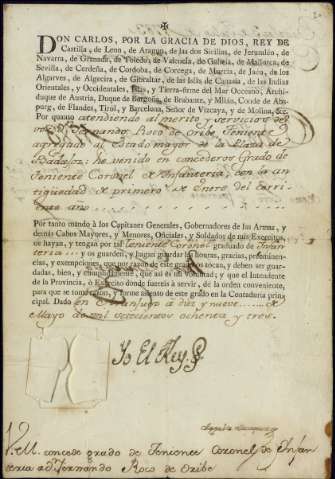 DON CARLOS, POR LA GRACIA DE DIOS, REY DE
Castilla, de Leon, de Aragon, de las dos Sicilias, de Jerusalén, de
Navarra, de Granada, de Toledo, de Valencia, de Galicia, de Mallorca, de
Sevilla, de Cerdeña, de Cordoba, de Corcega, de Murcia, de Jaen, de los
Algarves, de Algecira, de Gibraltar, de las Islas de Canaria, de las Indias
Orientales, y Occidentales, Islas, y Tierra-firme del Mar Occeano, Archi-
duque de Austria, Duque de Borgoña, de Brabante, y Milán, Conde de Abs-
purg, de Flandes, Tiról, y Barcelona, Señor de Vizcaya, y de Molina, &c.
Por quanto atendiendo al merito y servicios de
Fernando Roco de Oribe Teniente
agregado al Estado mayor de la Plaza de
Badajoz; he venido en concederos Grado de
Teniente Coronel de Infanteria, con la an-
tigüedad de primero de Enero del corri-
ente año
Por tanto mando à los Capitanes Generales, Gobernadores de las Armas, y
demás Cabos Mayores, y Menores, Oficiales, y Soldados de mis Exercitos,
os hayan, y tengan por tal Teniente Coronel graduado de Infan
teria y os guarden, y hagan guardar las honras, gracias, preeminen-
cias, y exempciones, que por razon de este grado os tocan, y deben ser guar-
dadas, bien, y cumplidamente, que así es mi voluntad; y que el Intendente
de la Provincia, ò Exercito donde fuereis à servir, dé la orden conveniente,
para que se tome razon, y forme asiento de este grado en la Contaduría prin-
cipal. Dado en Aranjuez à diez y nueve de
Mayo de mil setecientos ochenta y tres.
Yo El Rey
V.M. concede grado de Teniente Coronel de Infan
teria a dn. Fernando Roco de Oribe